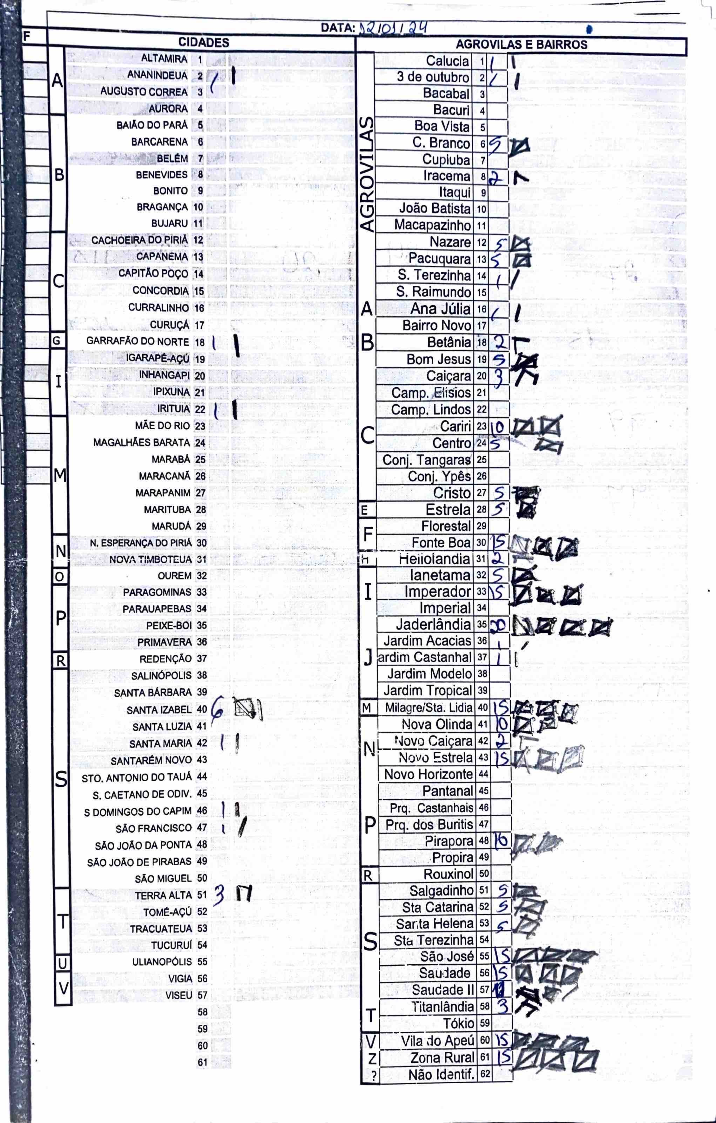 F
DATA: 02/01/24
CIDADES
A
ALTAMIRA 1
ANANINDEUA 2 1
AUGUSTO CORREA 3
AURORA 4
B
BAIÃO DO PARÁ 5
BARCARENA 6
BELÉM 7
BENEVIDES 8
BONITO 9
BRAGANÇA 10
BUJARU 11
C
CACHOEIRA DO PIRIÁ 12
CAPANEMA 13
CAPITÃO POÇO 14
CONCORDIA 15
CURRALINHO 16
CURUÇÁ 17
G
GARRAFÃO DO NORTE 18 1
I
IGARAPÉ-AÇÚ 19
INHANGAPI 20
IPIXUNA 21
IRITUIA 22 1
M
MÃE DO RIO 23
MAGALHÃES BARATA 24
MARABÁ 25
MARACANÃ 26
MARAPANIM 27
MARITUBA 28
MARUDÁ 29
N
N. ESPERANÇA DO PIRIÁ 30
NOVA TIMBOTEUA 31
O
OUREM 32
P
PARAGOMINAS 33
PARAUAPEBAS 34
PEIXE-BOI 35
PRIMAVERA 36
R
REDENÇÃO 37
S
SALINÓPOLIS 38
SANTA BÁRBARA 39
SANTA IZABEL 40 6
SANTA LUZIA 41
SANTA MARIA 42 1
SANTARÉM NOVO 43
STO. ANTONIO DO TAUÁ 44
S. CAETANO DE ODIV. 45
S DOMINGOS DO CAPIM 46 1
SÃO FRANCISCO 47 1
SÃO JOÃO DA PONTA 48
SÃO JOÃO DE PIRABAS 49
SÃO MIGUEL 50
T
TERRA ALTA 51 3
TOMÉ-AÇÚ 52
TRACUATEUA 53
TUCURUÍ 54
U
ULIANÓPOLIS 55
V
VIGIA 56
VISEU 57
58
59
60
61
AGROVILAS E BAIRROS
AGROVILAS
Calucia 1 1
3 de outubro 2 1
Bacabal 3
Bacuri 4
Boa Vista 5
C. Branco 6 5
Cupiuba 7
Iracema 8 2
Itaqui 9
João Batista 10
Macapazinho 11
Nazare 12 5
Pacuquara 13 5
S. Terezinha 14 1
S. Raimundo 15
A
Ana Júlia 16 1
B
Bairro Novo 17
Betânia 18 2
Bom Jesus 19 5
C
Caiçara 20 3
Camp. Elísios 21
Camp. Lindos 22
Cariri 23 10
Centro 24 5
Conj. Tangaras 25
Conj. Ypês 26
Cristo 27 5
E
Estrela 28 5
F
Florestal 29
Fonte Boa 30 15
H
Heliolandia 31 2
I
Ianetama 32 5
Imperador 33 15
Imperial 34
J
Jaderlândia 35 20
Jardim Acacias 36 1
ardim Castanhal 37 1
Jardim Modelo 38
Jardim Tropical 39
M
Milagre/Sta. Lidia 40 15
N
Nova Olinda 41 10
Novo Caiçara 42 2
Novo Estrela 43 15
Novo Horizonte 44
P
Pantanal 45
Prq. Castanhais 46
Prq. dos Buritis 47
Pirapora 48 10
Propira 49
R
Rouxinol 50
S
Salgadinho 51 5
Sta Catarina 52 5
Santa Helena 53 5
Sta Terezinha 54
São José 55 15
Saudade 56 15
Saudade II 57
T
Titanlândia 58 3
Tókio 59
V
Vila do Apeú 60 15
Z
Zona Rural 61 15
?
Não Identif. 62